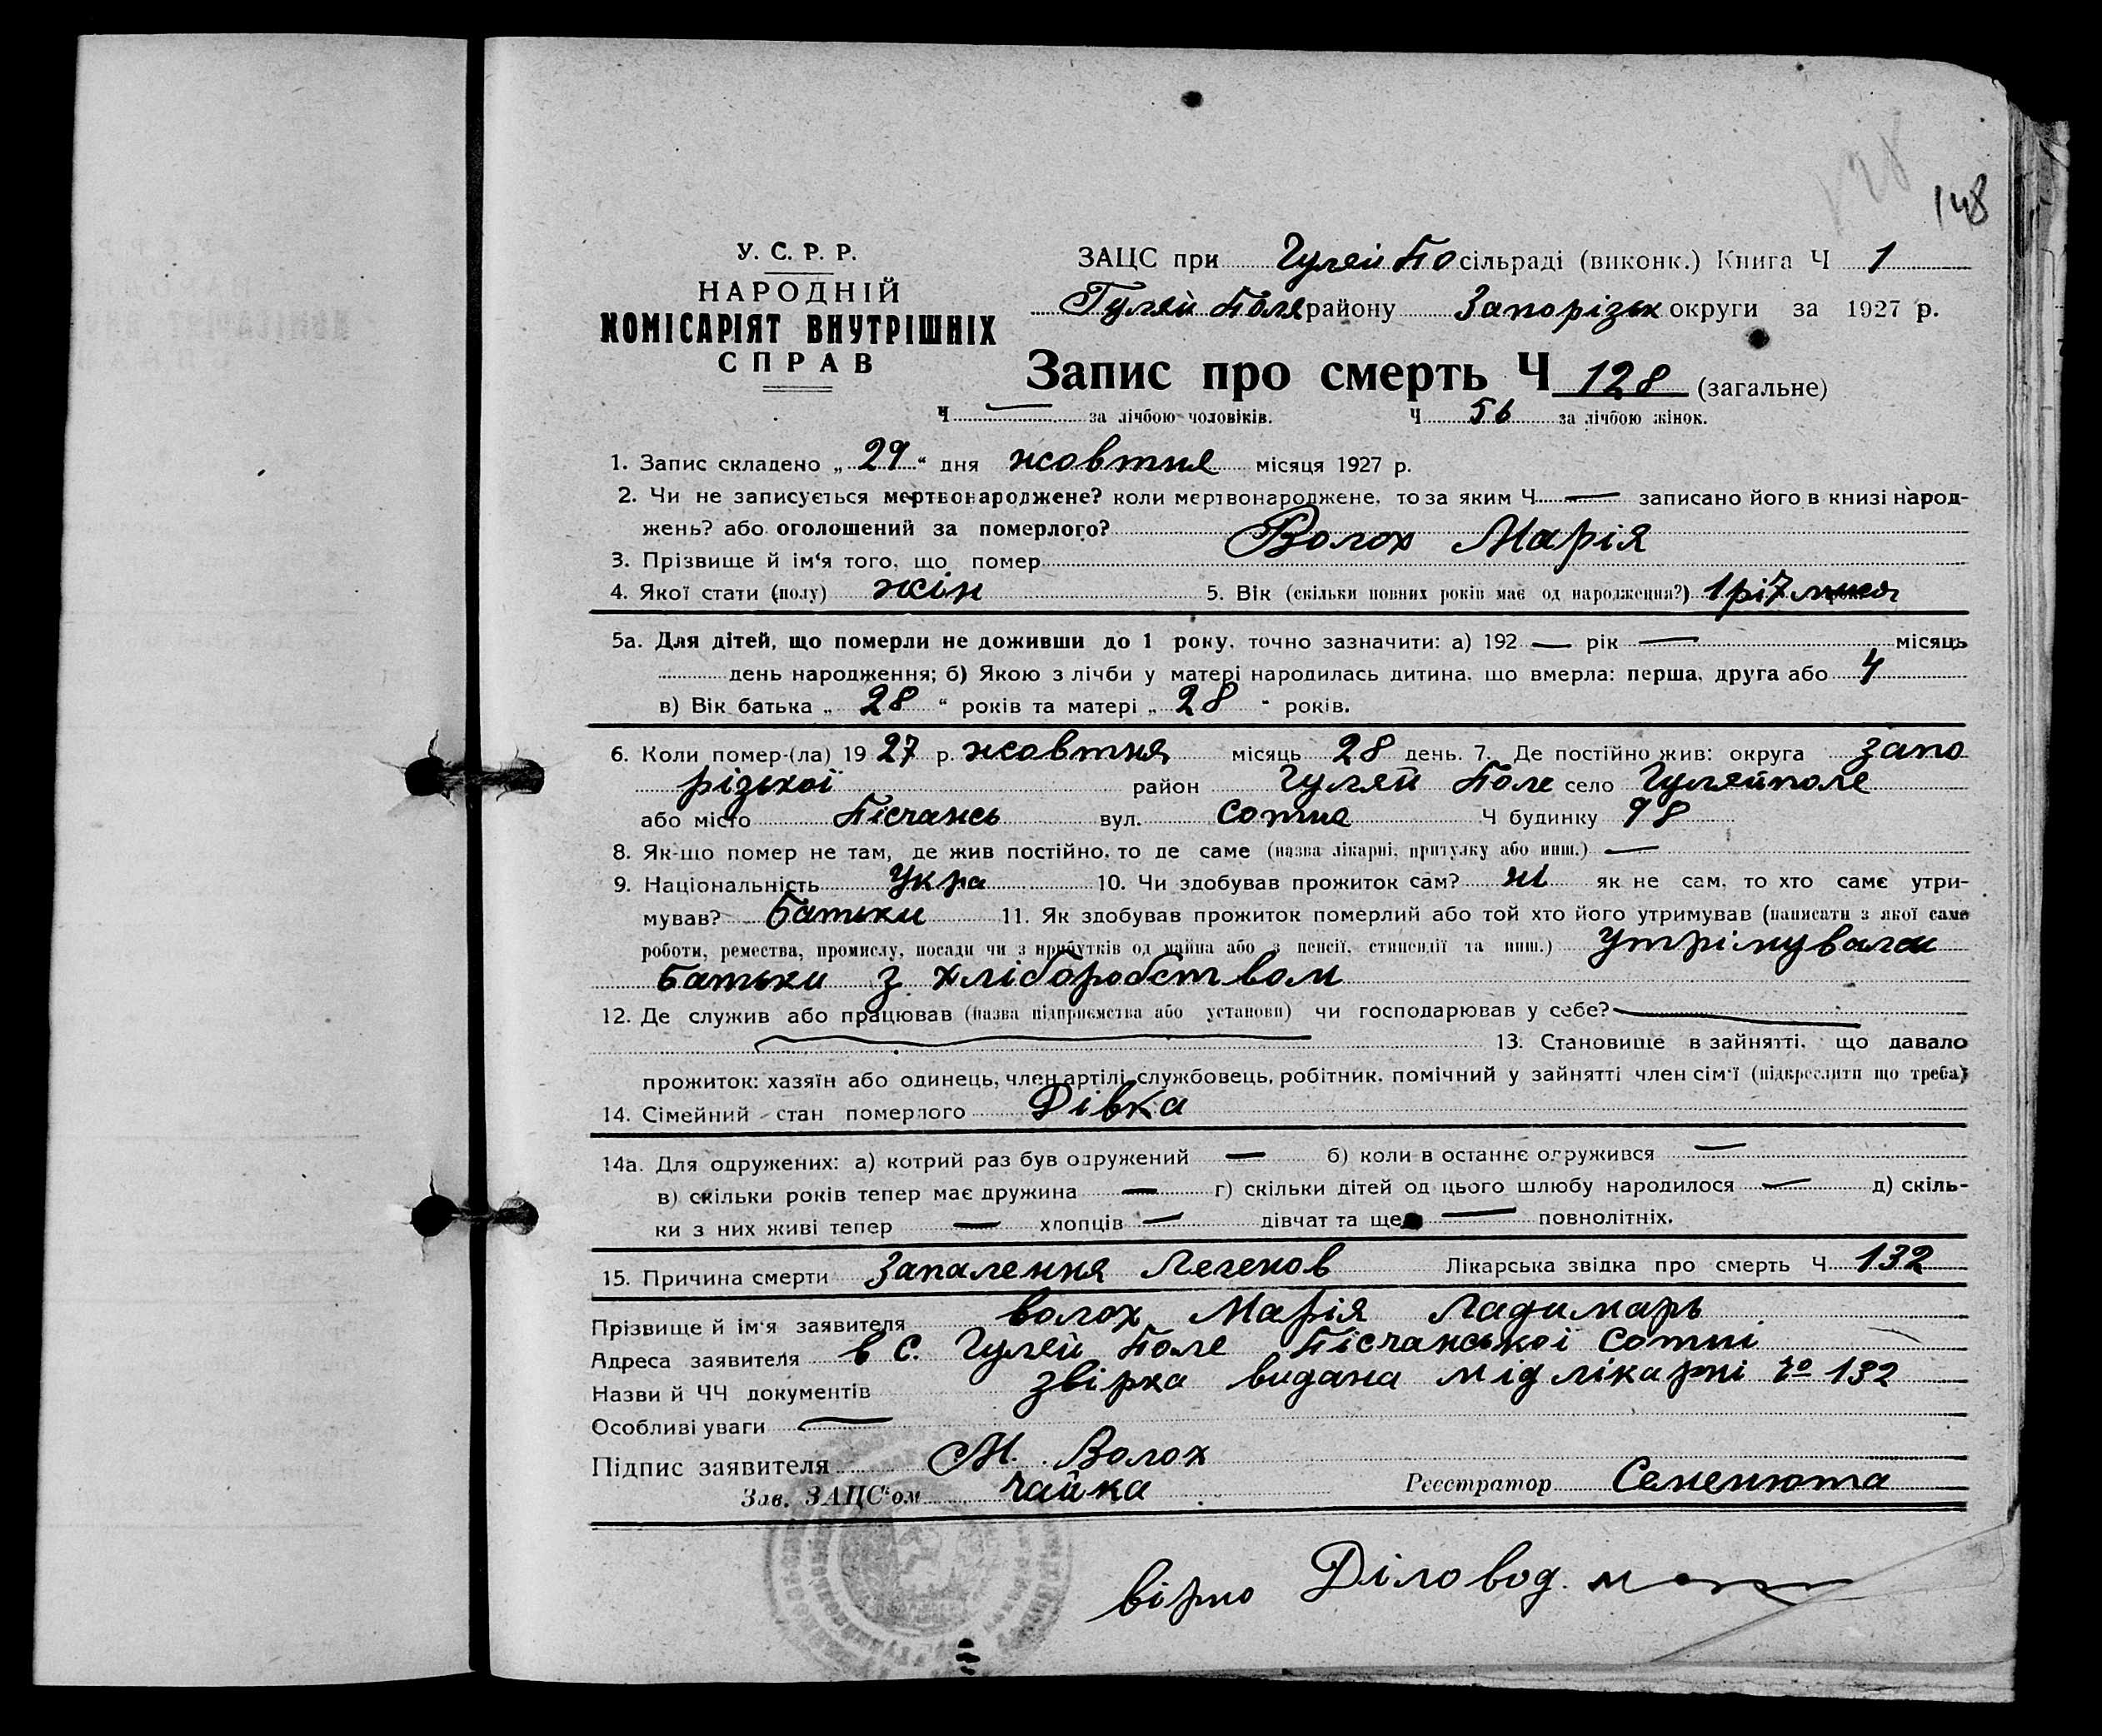 128
148
У. С. Р. Р.
НАРОДНІЙ
КОМІСАРІЯТ ВНУТРІШНІХ
СПРАВ
ЗАЦС при Гуляй По сільраді (виконк.) Книга Ч 1
Гуляй Поле району Запорізьк округи за 1927 р.
Запис про смерть Ч 128 (загальне)
Ч — за лічбою чоловіків. Ч 56 за лічбою жінок.
1. Запис складено „ 29 “ дня жовтня місяця 1927 р.
2. Чи не записується мертвонароджене? коли мертвонароджене, то за яким Ч — записано його в книзі народ-
жень? або оголошений за померлого?
3. Прізвище й ім‘я того, що помер Волох Марія
4. Якої стати (полу) жін 5. Вік (скільки повних років має од народження?) 1 рі 7
5а. Для дітей, що померли не доживши до 1 року, точно зазначити: а) 192 — рік — місяць
день народження; б) Якою з лічби у матері народилась дитина, що вмерла: перша, друга або 4
в) Вік батька „ 28 “ років та матері „ 28 " років.
6. Коли помер-(ла) 1927 р. жовтня місяць 28 день. 7. Де постійно жив: округа Запо
різької район Гуляй Поле село Гуляйполе
або місто Пісчансь вул. Сотне Ч будинку 98
8. Як-що помер не там, де жив постійно, то де саме (назва лікарні, притулку або инш.) —
9. Національність Укра 10. Чи здобував прожиток сам? ні як не сам, то хто саме утри-
мував? Батьки 11. Як здобував прожиток померлий або той хто його утримував (написати з якої саме
роботи, ремества, промислу, посади чи з прибутків од майна або з пенсії, стипендії та инш.) Утрімували
Батьки з хліборобством
12. Де служив або працював (назва підприємства або установи) чи господарював у себе? —
13. Становище в зайнятті, що давало
прожиток: хазяїн або одинець, член артілі, службовець, робітник, помічний у зайнятті член сім‘ї (підкреслити що треба)
14. Сімейний стан померлого Дівка
14а. Для одружених: а) котрий раз був одружений — б) коли в останнє одружився —
в) скільки років тепер має дружина — г) скільки дітей од цього шлюбу народилося — д) скіль-
ки з них живі тепер — хлопців — дівчат та ще — повнолітніх.
15. Причина смерти Запалення Легенов Лікарська звідка про смерть Ч 132
Прізвище й ім‘я заявителя волох Марія Ладимарь
Адреса заявителя в с. Гуляй Поле Пісчанської Сотні
Назви й ЧЧ документів звірка видана м ід лікарні № 132
Особливі уваги —
Підпис заявителя М. Волох
Зав. ЗАЦС‘ом Чайка Реєстратор Семенюта
вірно Діловод.